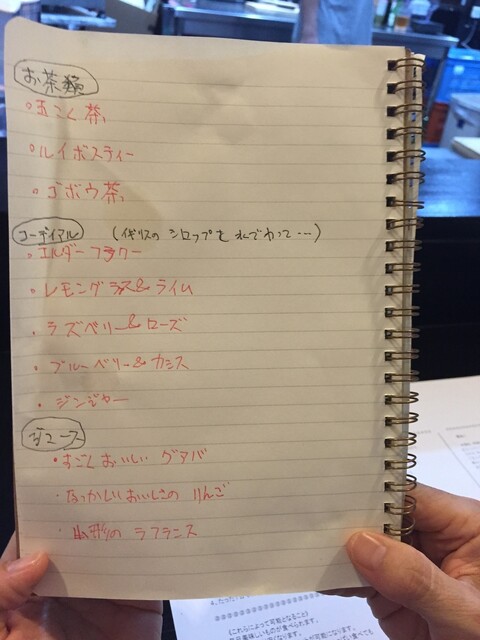 お茶類
玉こく茶
ルイボスティー
ゴボウ茶
コーディアル (イギリスの シロップを 水でわって…)
エルダーフラワー
レモングラス&ライム
ラズベリー&ローズ
ブルーベリー&カシス
ジンジャー
ジュース
・すごくおいしい グアバ
・なつかしいおいしさの りんご
・山形の ラフランス
《これらによって可能となること》